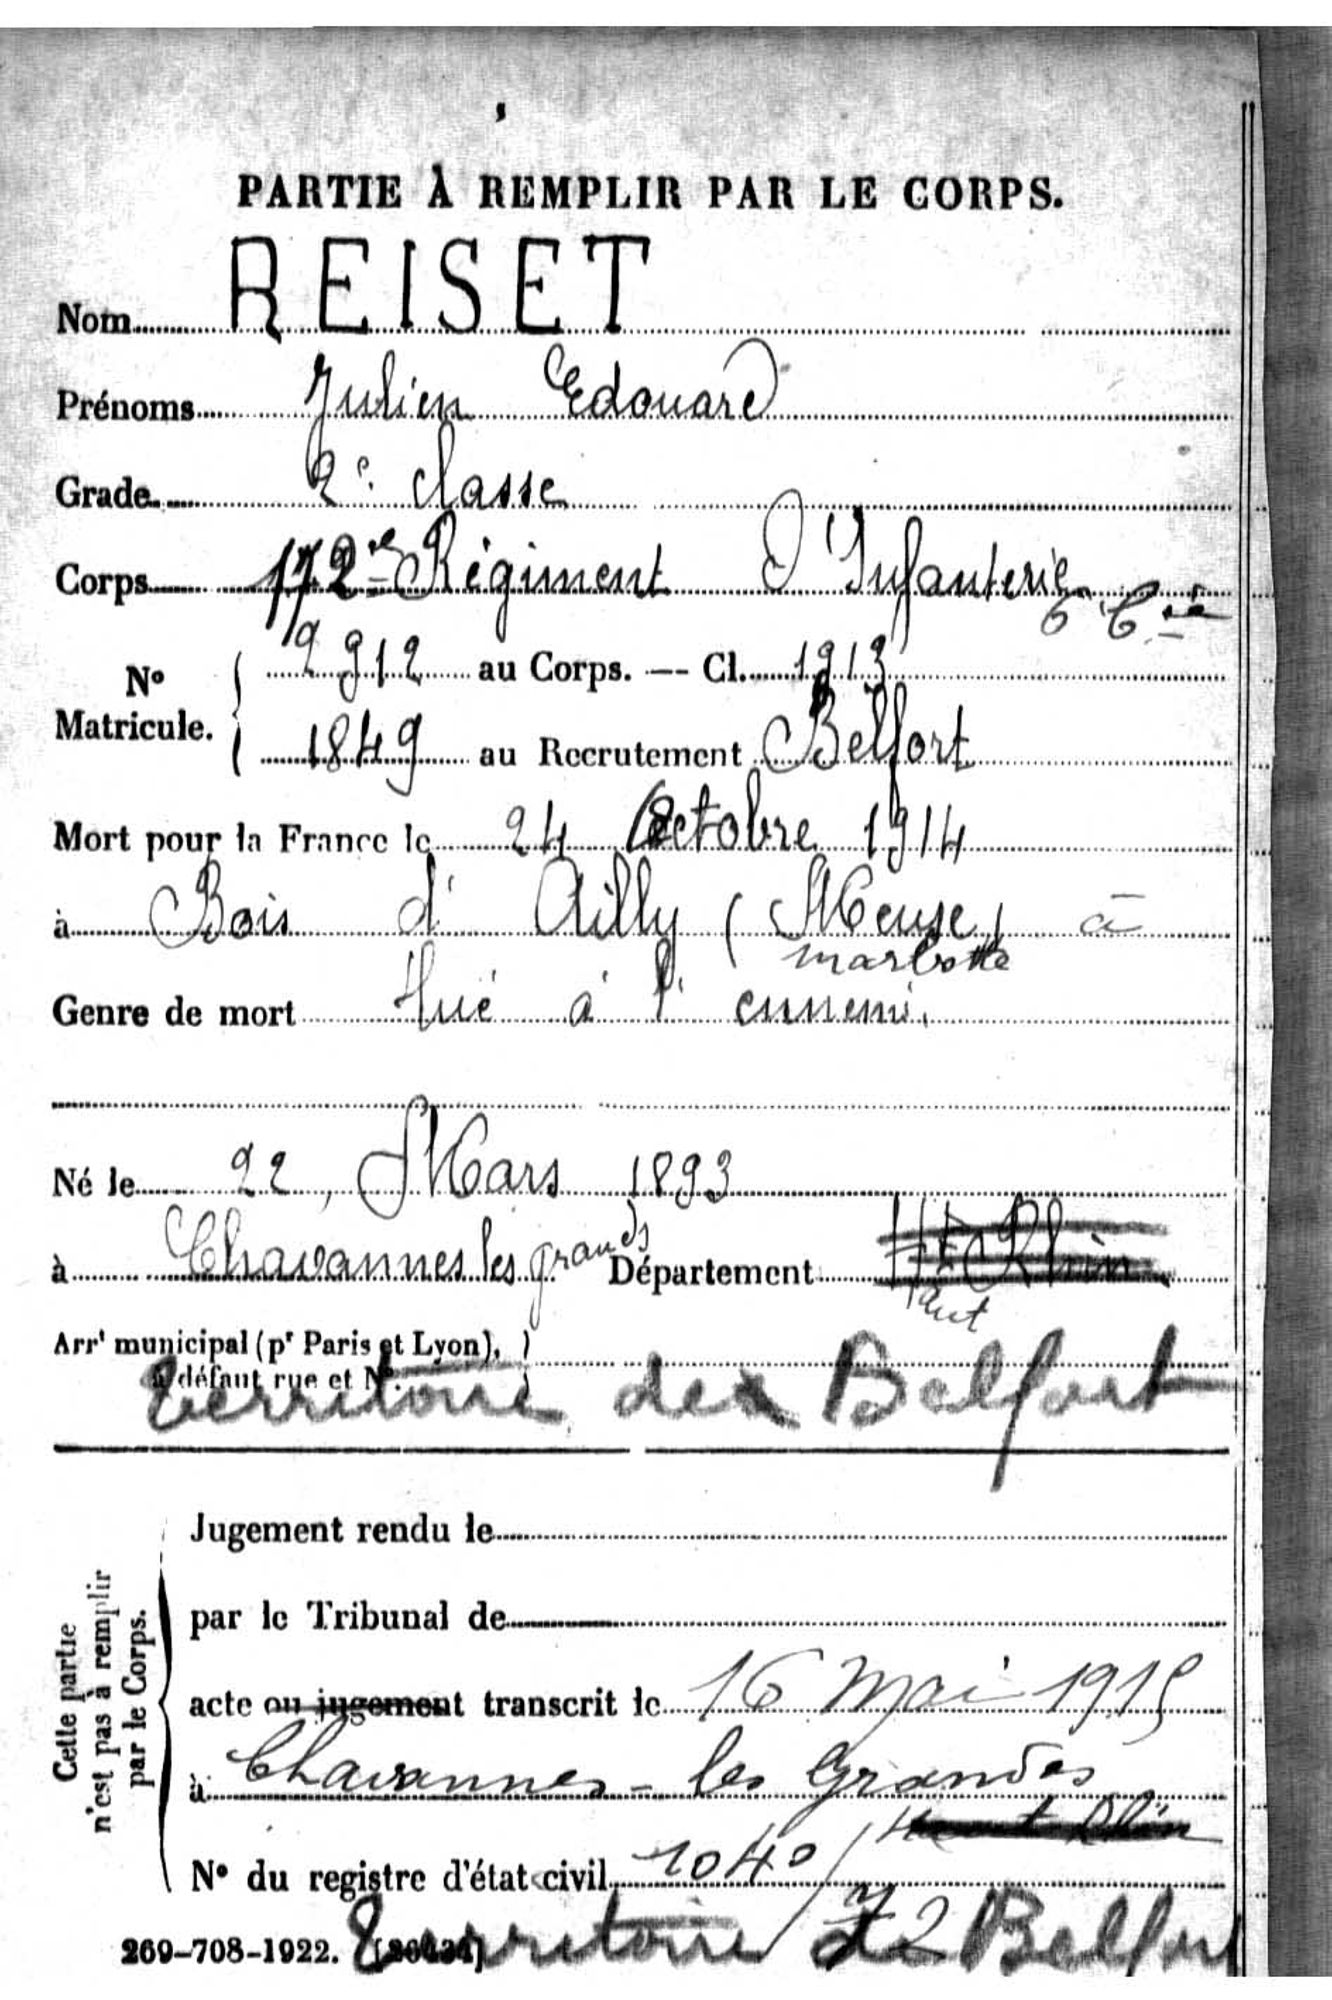 PARTIE À REMPLIR PAR LE CORPS.
Nom REISET
Prénoms Julien Edouard
Grade 2e classe
Corps 172e Régiment d'Infanterie
6e Cie
No Matricule. 2912 au Corps. — Cl. 1913
1849 au Recrutement Belfort
Mort pour la France le 24 Octobre 1914
à Bois d'Ailly (Meuse) à
marbotte
Genre de mort tué à l'ennemi.
Né le 22 Mars 1893
à Chavannes les grands Département Ht Rhin
Arrt municipal (pr Paris et Lyon),
à défaut rue et No.
Territoire de Belfort
Cette partie n'est pas à remplir par le Corps.
Jugement rendu le
par le Tribunal de
acte ou jugement transcrit le 16 Mai 1915
à Chavannes-les Grandes
Haut Rhin
No du registre d'état civil 1040/72
269-708-1922. [26434]
Territoire de Belfort